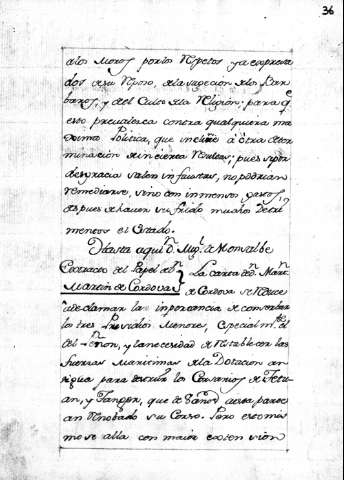 36
a los Moros por los Respetos ya expresa
dos de su Reposo, de la sugecion de los Bar
baros, y del Culto de la Religion; para qe
esto prevalezca contra qualquiera ma
xima Politica, que incline á otra deter
minacion de incierta resulta; pues si por
desgracia salen infaustas, no podrian
remediarse, sino con inmensos gastos,
despues de haver sufrido muchos detri
mentos el Estado.
Hasta aqui Dn. Migl. de Monsalbe
Extracto del Papel de Dn.
Martin de Cordova
La Carta de Dn. Martn.
de Cordova se Reduce
a declamar la importancia de conservar
los tres Presidios Menores, especialmte. el
del Peñon, y la necesidad de Restablecer las
fuerzas maritimas de la Dotacion an
tigua para destruir los Corsarios de Tetu
an, y Tanger, que de 8 años a esta parte
an Renobado su Corso. Pero esto mis
mo se alla con maior extension